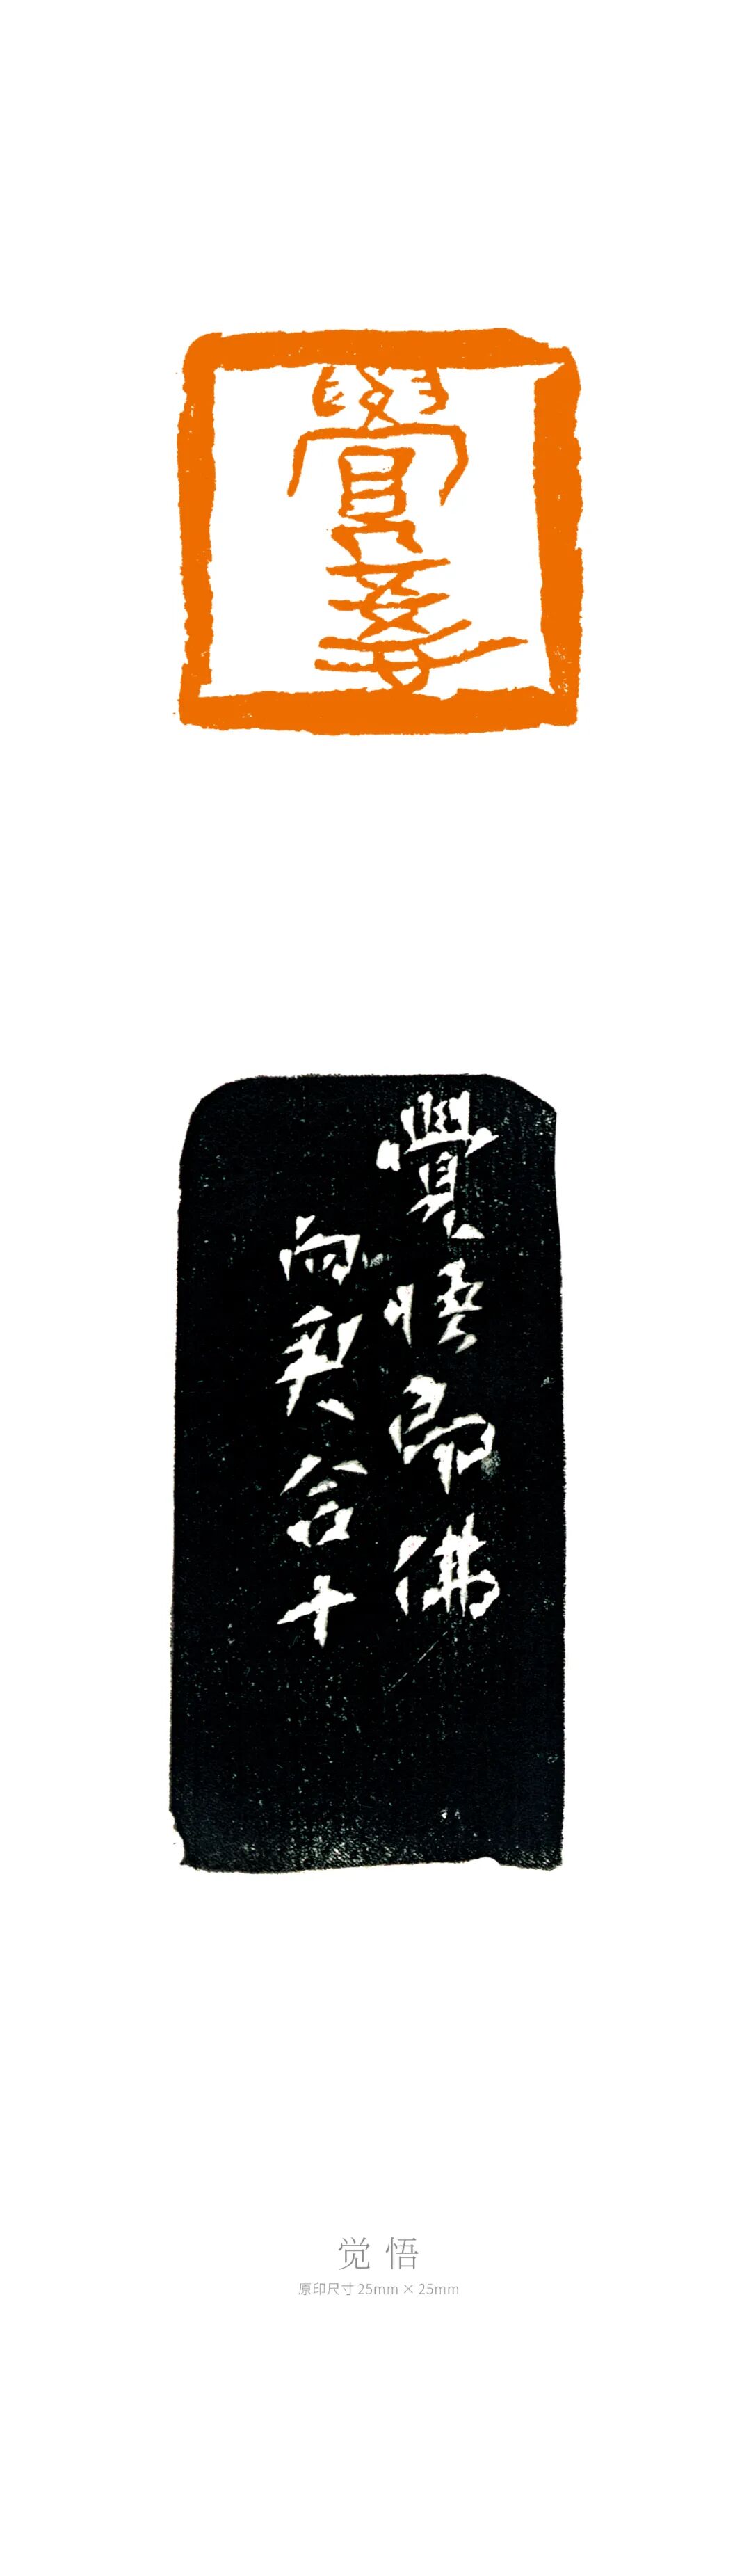 覺悟
覺悟即佛
雨奭合十
觉悟
原印尺寸25mm×25mm